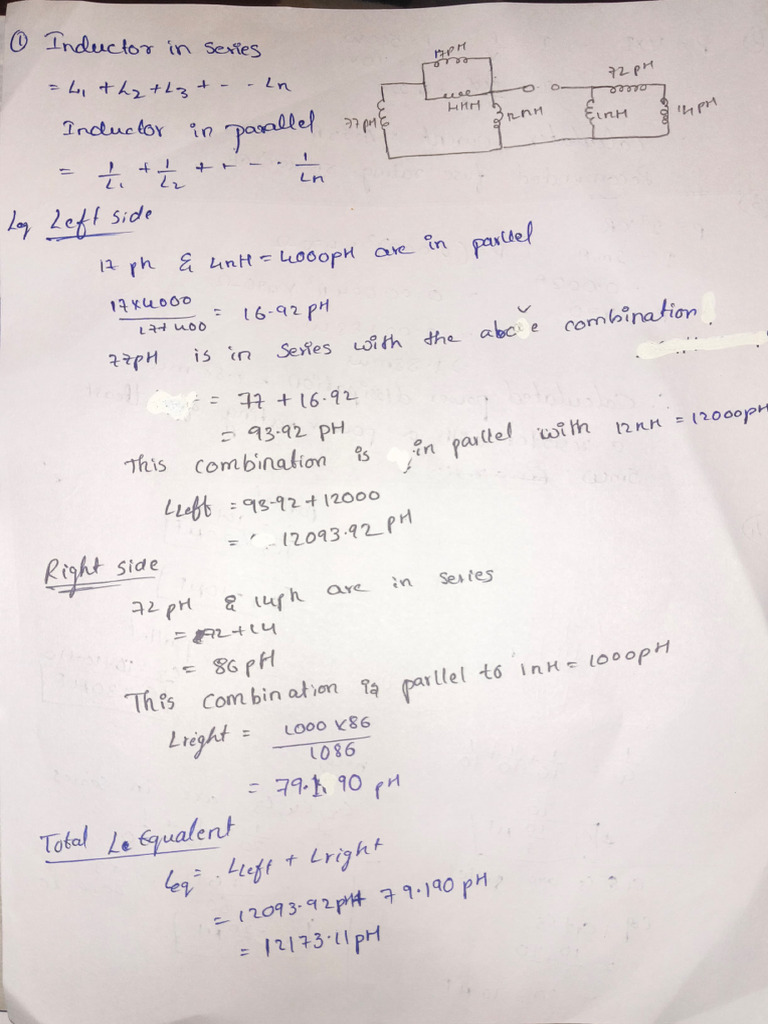 ① Inductor in series
= L1 + L2 + L3 + - - Ln
Inductor in parallel
= 1/L1 + 1/L2 + + - - . 1/Ln
17pH
4nH
77pH
12nH
72pH
1nH
14pH
Leq Left side
17 ph & 4nH = 4000pH are in parllel
17×4000/17+400 = 16.92 pH
77pH is in series with the above combination
= 77 + 16.92
= 93.92 pH
This combination is in parllel with 12nH = 12000pH
Lleft = 93.92 + 12000
= 12093.92 pH
Right side
72 pH & 14ph are in series
= 72+14
= 86 pH
This combination is parllel to 1nH = 1000pH
Lright = 1000 × 86/1086
= 79.190 pH
Total Le Equalent
Leq = Lleft + Lright
= 12093.92pH 79.190 pH
= 12173.11pH